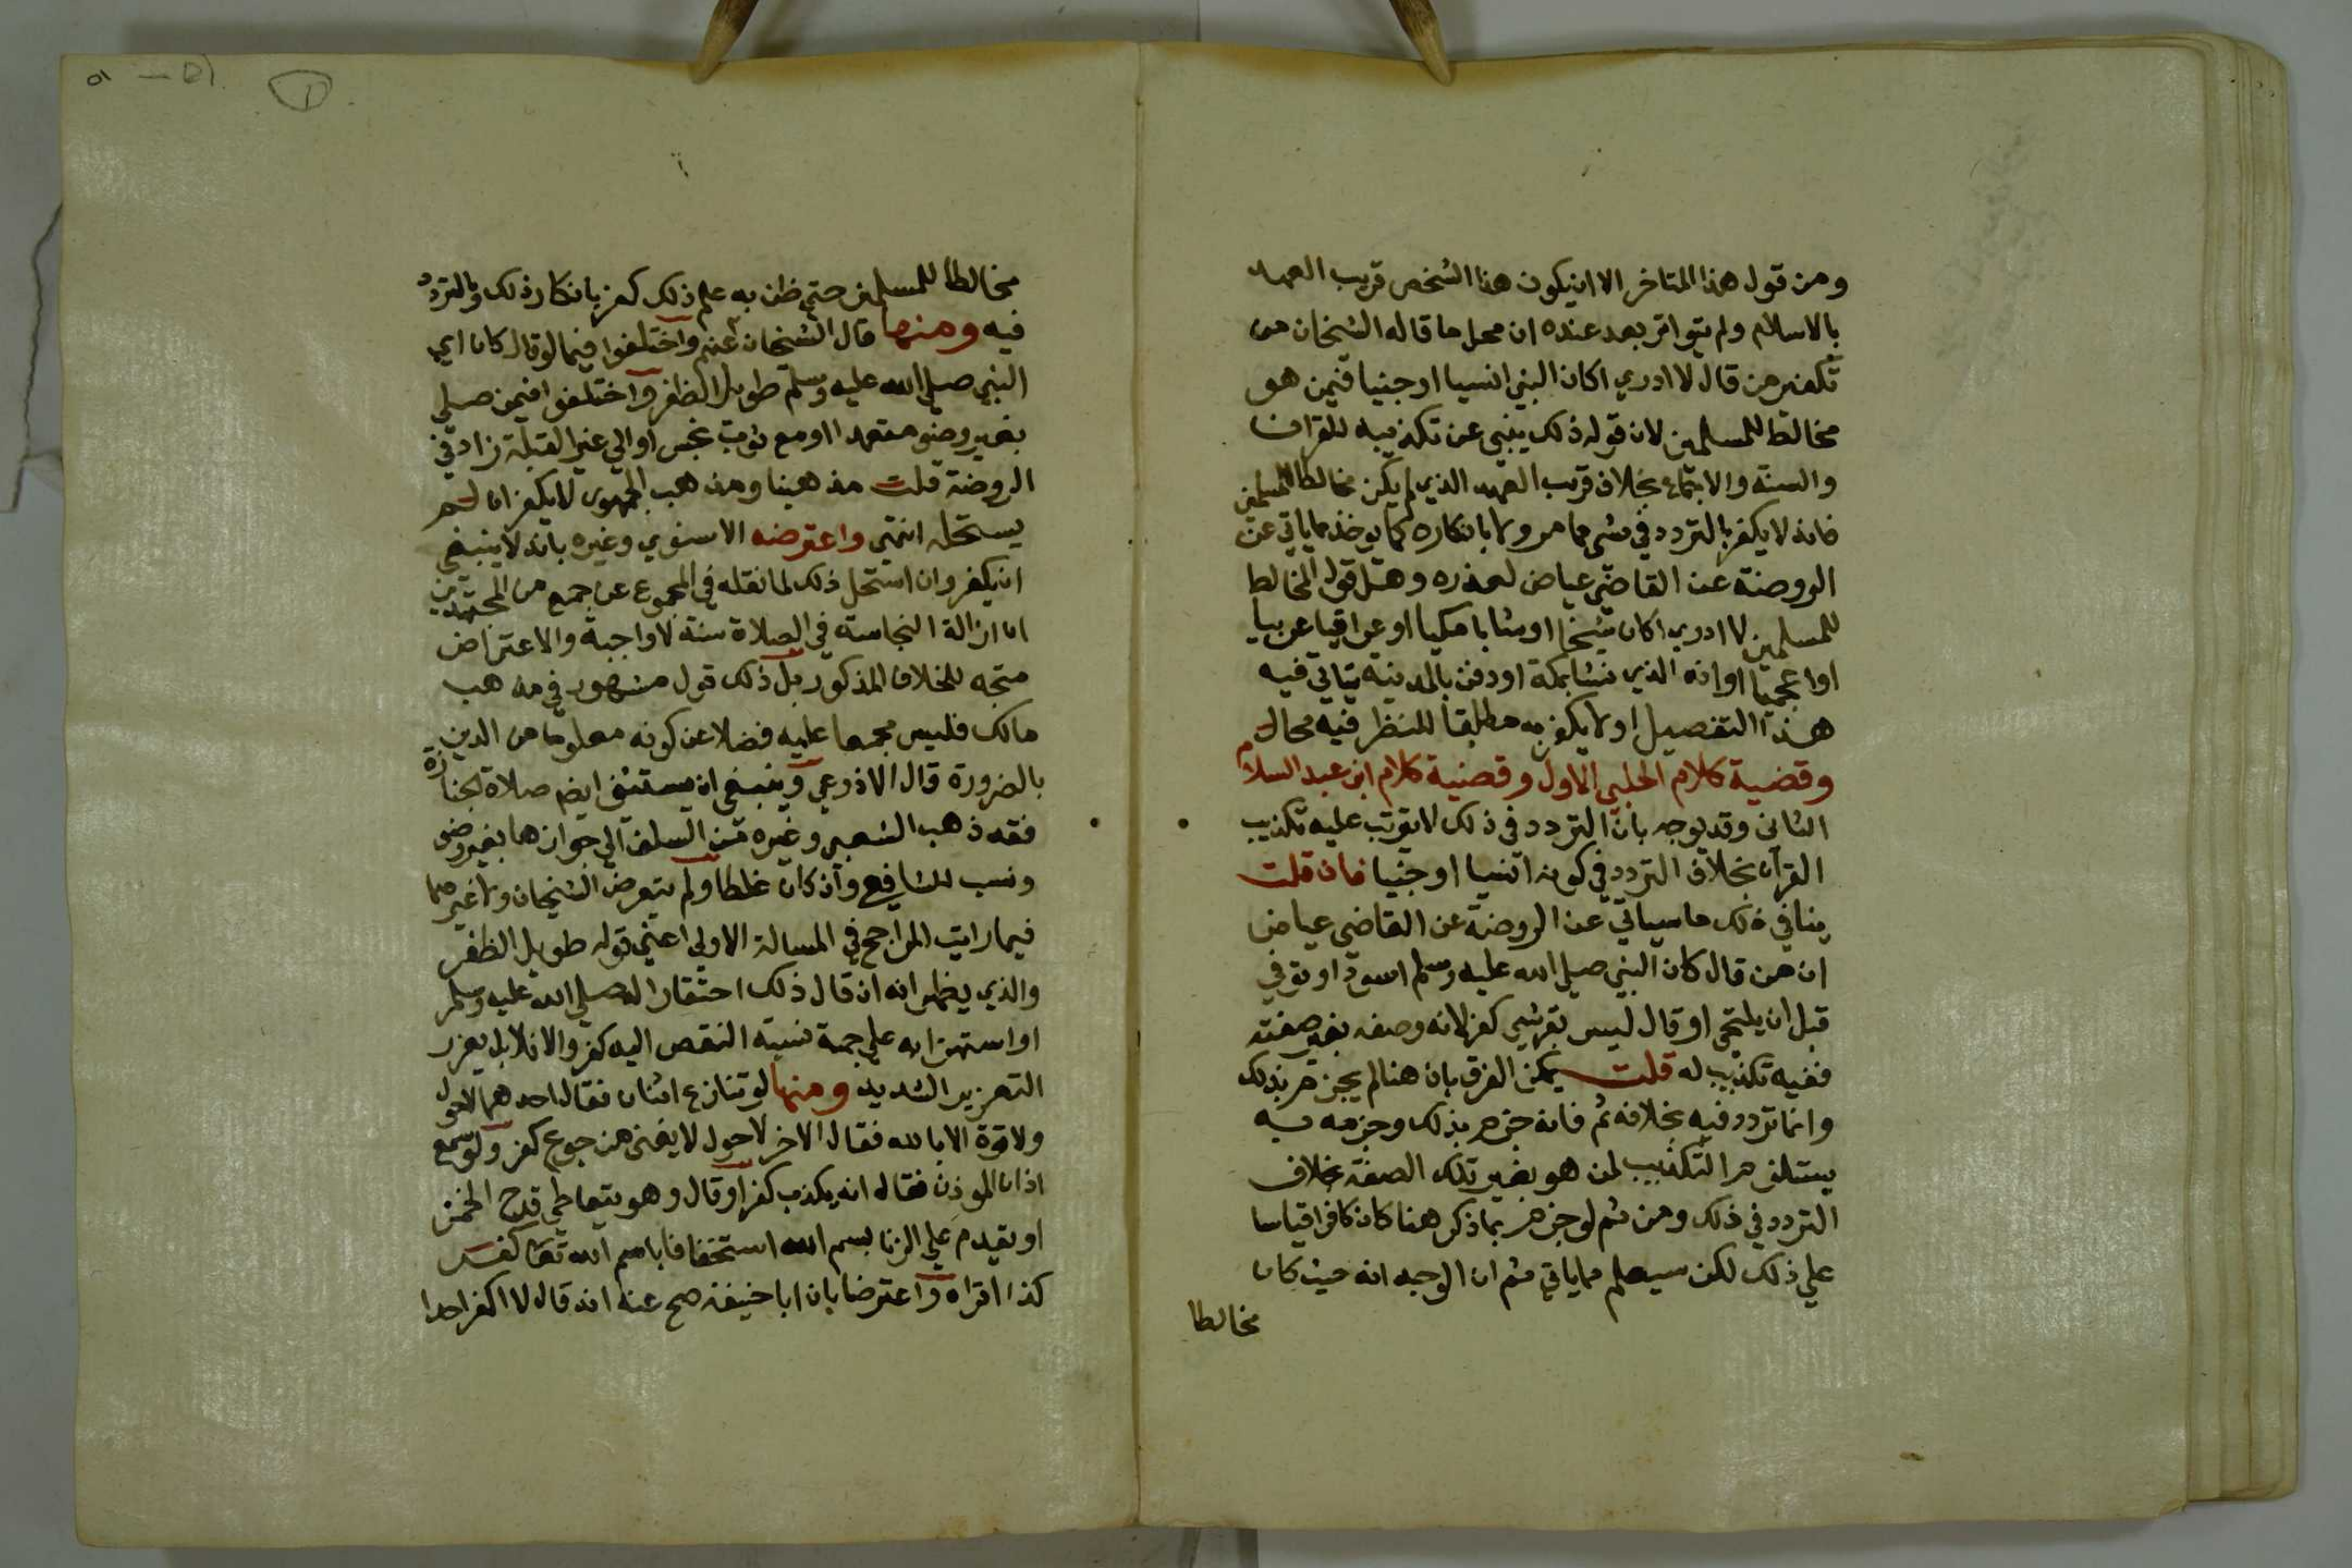 ومن قول هذا المتاخر الا ان يكون هذا الشخص قريب العهد
بالاسلام ولم يتواتر بعد عنده ان محل ما قاله الشيخان من
تكفير من قال لا ادري اكان النبي انسيا او جنيا فيمن هو
مخالط للمسلمين لان قوله ذلك ينبي عن تكذيبه للقران
والسنة والاجماع بخلاف قريب العهد الذي لم يكن مخالطا للمسلمين
فانه لا يكفر بالتردد في شي مما مر ولا بانكاره كما يوخذ مما ياتي عن
الروضة عن القاضي عياض لعذره وهل قول المخالط
للمسلمين لا ادري اكان شيخا او شابا مكيا او عراقيا عربيا
او اعجميا او انه الذي نشا بمكة او دفن بالمدينة يتاتي فيه
هذا التفصيل او لا يكفر به مطلقا للنظر فيه مجال
وقضية كلام الحليمي الاول وقضية كلام ابن عبد السلام
الثاني وقد يوجه بان التردد في ذلك لا يترتب عليه تكذيب
القرآن بخلاف التردد في كونه انسيا او جنيا فان قلت
ينافي ذلك ما سياتي عن الروضة عن القاضي عياض
ان من قال كان النبي صلي الله عليه وسلم اسود او توفي
قبل ان يلتحي او قال ليس بقرشي كفر لانه وصفه بغير صفته
ففيه تكذيب له قلت يمكن الفرق بان هنا لم يجزم بذلك
وانما تردد فيه بخلافه ثم فانه جزم بذلك وجزمه به
يستلزم التكذيب لمن هو بغير تلك الصفة بخلاف
التردد في ذلك ومن ثم لو جزم بما ذكر هنا كان كافرا قياسا
علي ذلك لكن سيعلم مما ياتي ثم ان الوجه انه حيث كان
مخالطا
مخالطا للمسلمين حتي ظن به علم ذلك كفر بانكار ذلك وبالتردد
فيه ومنها قال الشيخان عنهم واختلفوا فيما لو قال كان اي
النبي صلي الله عليه وسلم طويل الظفر واختلفوا فيمن صلي
بغير وضو متعمدا او مع ثوب نجس او الي غير القبلة زاد في
الروضة قلت مذهبنا ومذهب الجمهور لا يكفر ان لم
يستحله انتهي واعترضه الاسنوي وغيره بانه لا ينبغي
ان يكفر وان استحل ذلك لما نقله في المجموع عن جمع من المجتهدين
ان ازالة النجاسة في الصلاة سنة لا واجبة والاعتراض
متجه للخلاف المذكور بل ذلك قول مشهور في مذهب
مالك فليس مجمعا عليه فضلا عن كونه معلوما من الدين
بالضرورة قال الاذرعي وينبغي ان يستثني ايضا صلاة الجنازة
فقد ذهب الشعبي وغيره من السلف الي جوازها بغير وضو
ونسب للشافعي وان كان غلطا ولم يتعرض الشيخان ولا غيرهما
فيما رايت الراجح في المسالة الاولي اعني قوله طويل الظفر
والذي يظهر انه ان قال ذلك احتقارا له صلي الله عليه وسلم
او استهزا به علي جهة نسبة النقص اليه كفر والا فلا بل يعزر
التعزير الشديد ومنها لو تنازع اثنان فقال احدهما لا حول
ولا قوة الا بالله فقال الاخر لا حول لا يغني من جوع كفر ولو سمع
اذان الموذن فقال انه يكذب كفر او قال وهو يتعاطي قدح الخمر
او يقدم علي الزنا بسم الله استخفافا باسم الله تعا كفر
كذا اقراه واعترضا بان ابا حنيفة صح عنه انه قال لا اكفر احدا